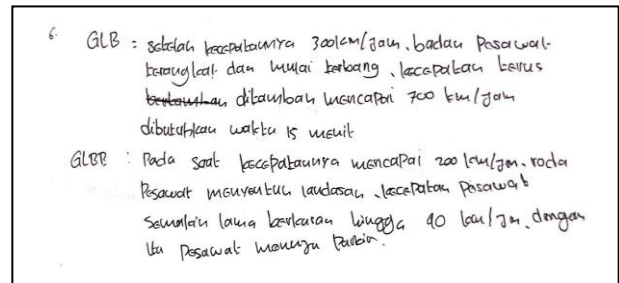 6. GLB : setelah kecepatannya 300 km/jam, badan pesawat
terangkat dan mulai terbang, kecepatan terus
ditambah mencapai 700 km/jam
dibutuhkan waktu 15 menit
GLBB : Pada saat kecepatannya mencapai 200 km/jm, roda
Pesawat menyentuh landasan, kecepatan pesawat
Semakin lama berkuran hingga 40 km/jm, dengan
itu pesawat menuju Parkir.